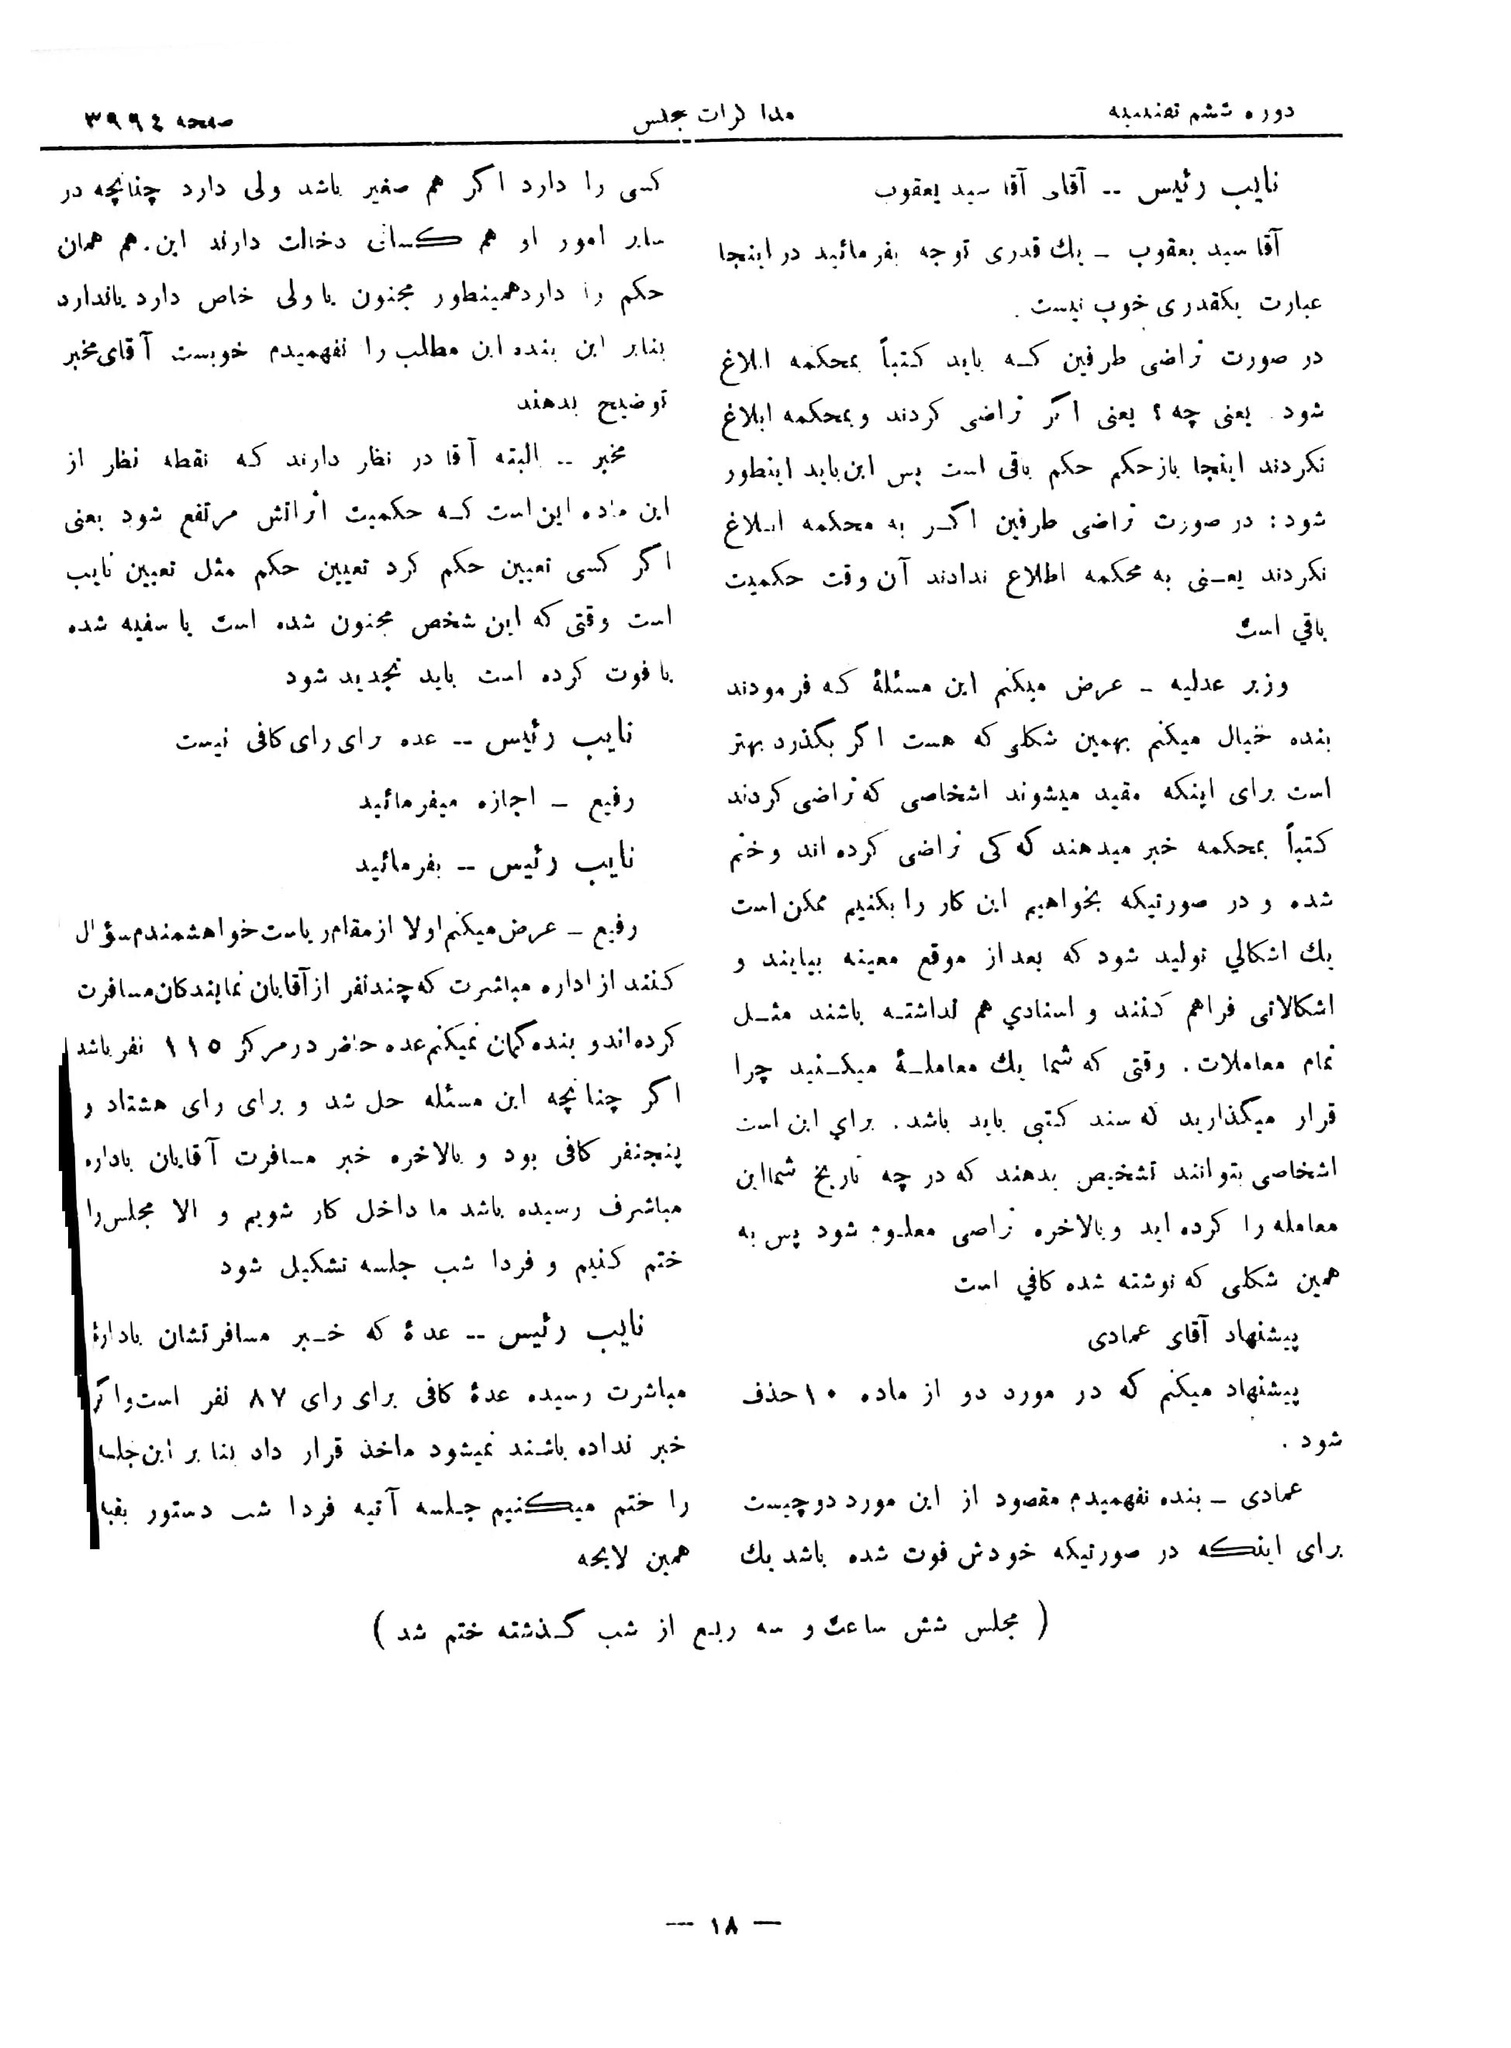 دوره ششم تقنینیه
مذاکرات مجلس
صفحه ۳۹۹۴
نایب رئیس -- آقای آقا سید یعقوب
آقا سید یعقوب - یك قدری توجه بفرمائید در اینجا
عبارت یکقدری خوب نیست .
در صورت تراضی طرفین که باید کتباً بمحکمه ابلاغ
شود . یعنی چه ؟ یعنی اگر تراضی کردند و بمحکمه ابلاغ
نکردند اینجا باز حکم حکم باقی است پس این باید اینطور
شود : در صورت تراضی طرفین اگر به محکمه ابلاغ
نکردند یعنی به محکمه اطلاع ندادند آن وقت حکمیت
باقي است
وزیر عدلیه - عرض میکنم این مسئلهٔ که فرمودند
بنده خیال میکنم بهمین شکلی که هست اگر بگذرد بهتر
است برای اینکه مقید میشوند اشخاصی که تراضی کردند
کتباً بمحکمه خبر میدهند که کی تراضی کرده اند و ختم
شده و در صورتیکه بخواهیم این کار را بکنیم ممکن است
یك اشکالي تولید شود که بعد از موقع معینه بیایند و
اشکالاتی فراهم کنند و اسنادي هم نداشته باشند مثل
تمام معاملات . وقتی که شما یك معاملهٔ میکنید چرا
قرار میگذارید که سند کتبی باید باشد . براي این است
اشخاصی بتوانند تشخیص بدهند که در چه تاریخ شما این
معامله را کرده اید و بالاخره تراضی معلوم شود پس به
همین شکلی که نوشته شده کافي است
پیشنهاد آقای عمادی
پیشنهاد میکنم که در مورد دو از ماده ۱۰ حذف
شود .
عمادی - بنده نفهمیدم مقصود از این مورد دو چیست
برای اینکه در صورتیکه خودش فوت شده باشد یك
کسی را دارد اگر هم صغیر باشد ولی دارد چنانچه در
سایر امور او هم کسانی دخالت دارند این . هم همان
حکم را دارد همینطور مجنون یا ولی خاص دارد یا ندارد
بنابر این بنده این مطلب را نفهمیدم خوبست آقای مخبر
توضیح بدهند
مخبر -- البته آقا در نظر دارند که نقطه نظر از
این ماده این است که حکمیت اثراتش مرتفع شود یعنی
اگر کسی تعیین حکم کرد تعیین حکم مثل تعیین نایب
است وقتی که این شخص مجنون شده است یا سفیه شده
یا فوت کرده است باید تجدید شود
نایب رئیس -- عده برای رای کافی نیست
رفیع - اجازه میفرمائید
نایب رئیس -- بفرمائید
رفیع - عرض میکنم اولا از مقام ریاست خواهشمندم سؤال
کنند از اداره مباشرت که چند نفر از آقایان نمایندگان مسافرت
کرده اند و بنده گمان نمیکنم عده حاضر در مرکز ۱۱۵ نفر باشد
اگر چنانچه این مسئله حل شد و برای رای هشتاد و
پنجنفر کافی بود و بالاخره خبر مسافرت آقایان باداره
مباشرف رسیده باشد ما داخل کار شویم و الا مجلس را
ختم کنیم و فردا شب جلسه تشکیل شود
نایب رئیس -- عدهٔ که خبر مسافرتشان بادارهٔ
مباشرت رسیده عدهٔ کافی برای رای ۸۷ نفر است و اگر
خبر نداده باشند نمیشود ماخذ قرار داد بنا بر این جلسه
را ختم میکنیم جلسه آتیه فردا شب دستور بقیه
همین لایحه
( مجلس شش ساعت و سه ربع از شب گذشته ختم شد )
— ۱۸ —